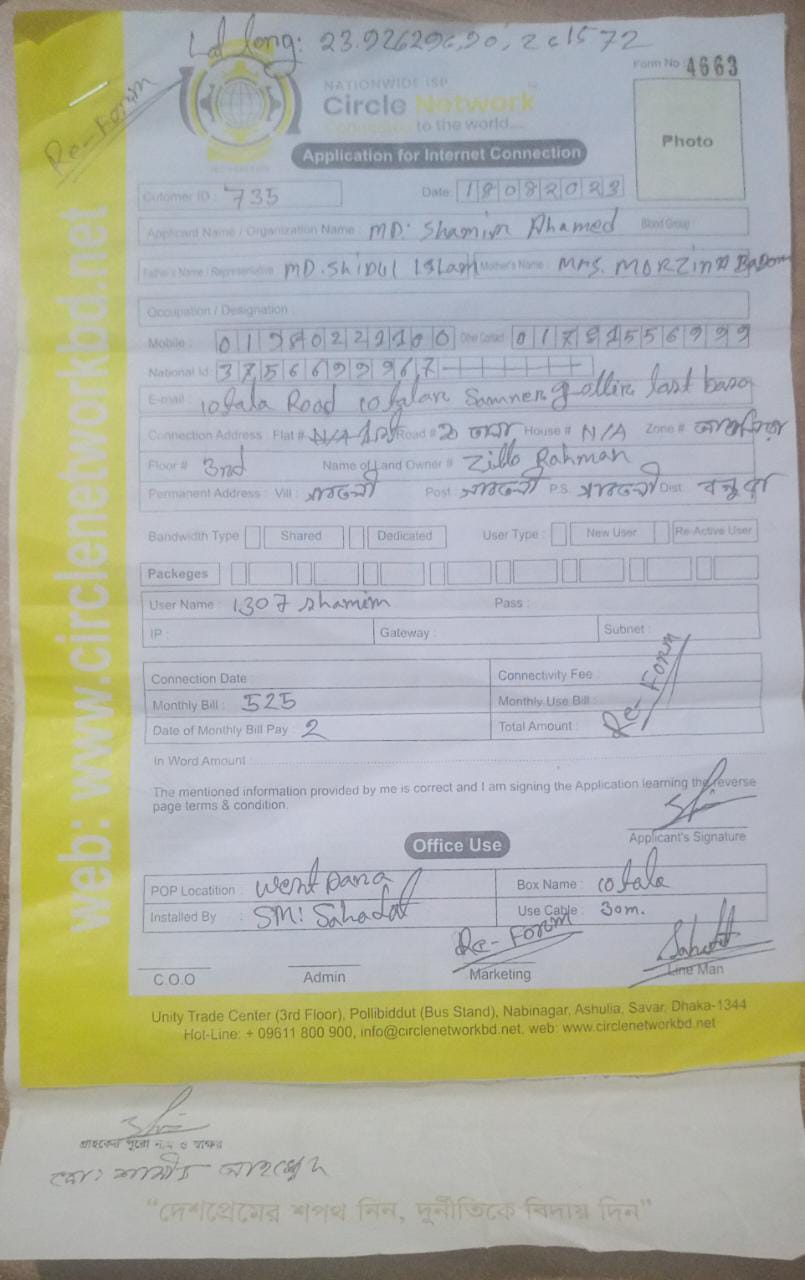 Lat long: 23.926296,90,261572
Re-Form
Form No : 4663
NATIONWIDE ISP
Circle Network
Connected to the world....
Photo
Application for Internet Connection
Cutomer ID : 735 Date 18082023
Applicant Name / Organization Name : MD: Shamim Ahamed Blood Group :
Father's Name / Representative MD. Shipul Islam Mother's Name : Mrs. MORZina
Occupation / Designation :
Mobile : Other Contact
National Id:
E-mail : 10 tala Road 10 talar last basa
Connection Address : Flat # N/A Road # House # N/A Zone #
Floor # 3rd Name of Land Owner # Zillo Rahman
Permanent Address : Vill : Post : P.S. Dist.
Bandwidth Type Shared Dedicated User Type : New User Re-Active User
Packeges
User Name : 1307 shamim Pass :
IP : Gateway : Subnet :
Connection Date : Connectivity Fee :
Monthly Bill : 525 Monthly Use Bill :
Date of Monthly Bill Pay : 2 Total Amount :
Re-Form
In Word Amount :
The mentioned information provided by me is correct and I am signing the Application learning the reverse
page terms & condition.
Applicant's Signature
Office Use
POP Locatition : West para Box Name : 10 tala
Installed By : SM: Sahadat Use Cable : 30m.
Re-Form Sahadat
C.O.O Admin Marketing Line Man
Unity Trade Center (3rd Floor), Pollibiddut (Bus Stand), Nabinagar, Ashulia, Savar, Dhaka-1344
Hot-Line: + 09611 800 900, info@circlenetworkbd.net. web: www.circlenetworkbd.net
web: www.circlenetworkbd.net
গ্রাহকের পুরো নাম ও স্বাক্ষর
মোঃ শামীম আহম্মেদ
“দেশপ্রেমের শপথ নিন, দুর্নীতিকে বিদায় দিন”